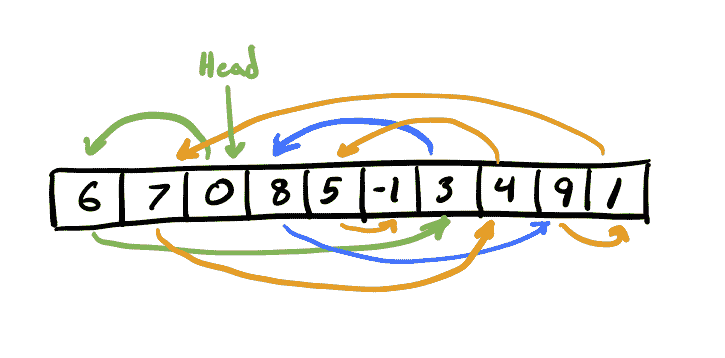 Head
6 7 0 8 5 -1 3 4 9 1